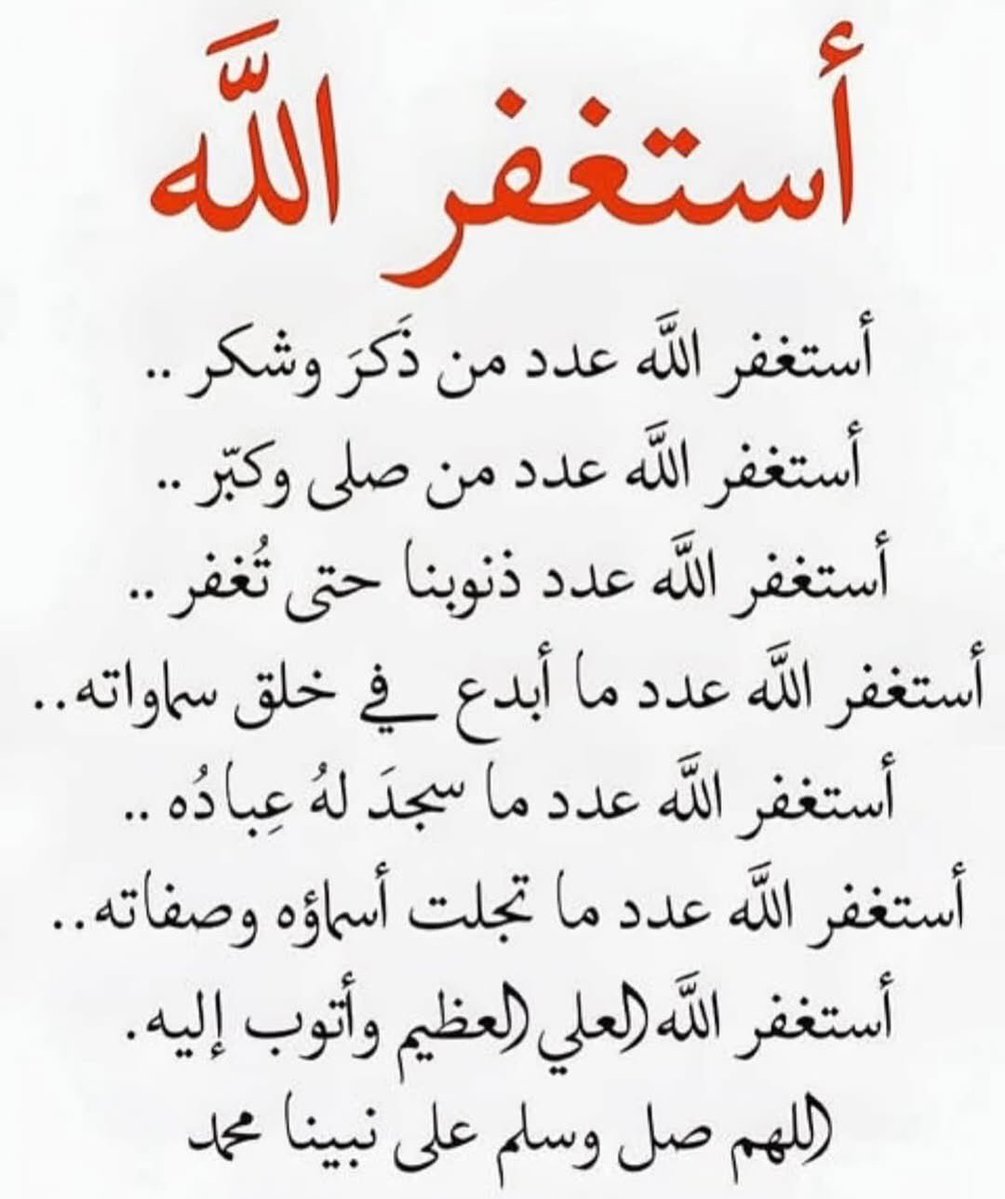 أستغفر اللَّه
أستغفر اللَّه عدد من ذَكَرَ وشكر ..
أستغفر اللَّه عدد من صلى وكبّر ..
أستغفر اللَّه عدد ذنوبنا حتى تُغفر ..
أستغفر اللَّه عدد ما أبدع في خلق سماواته..
أستغفر اللَّه عدد ما سجدَ لهُ عِبادُه ..
أستغفر اللَّه عدد ما تجلت أسماؤه وصفاته..
أستغفر اللَّه العلي العظيم وأتوب إليه.
اللهم صل وسلم على نبينا محمد